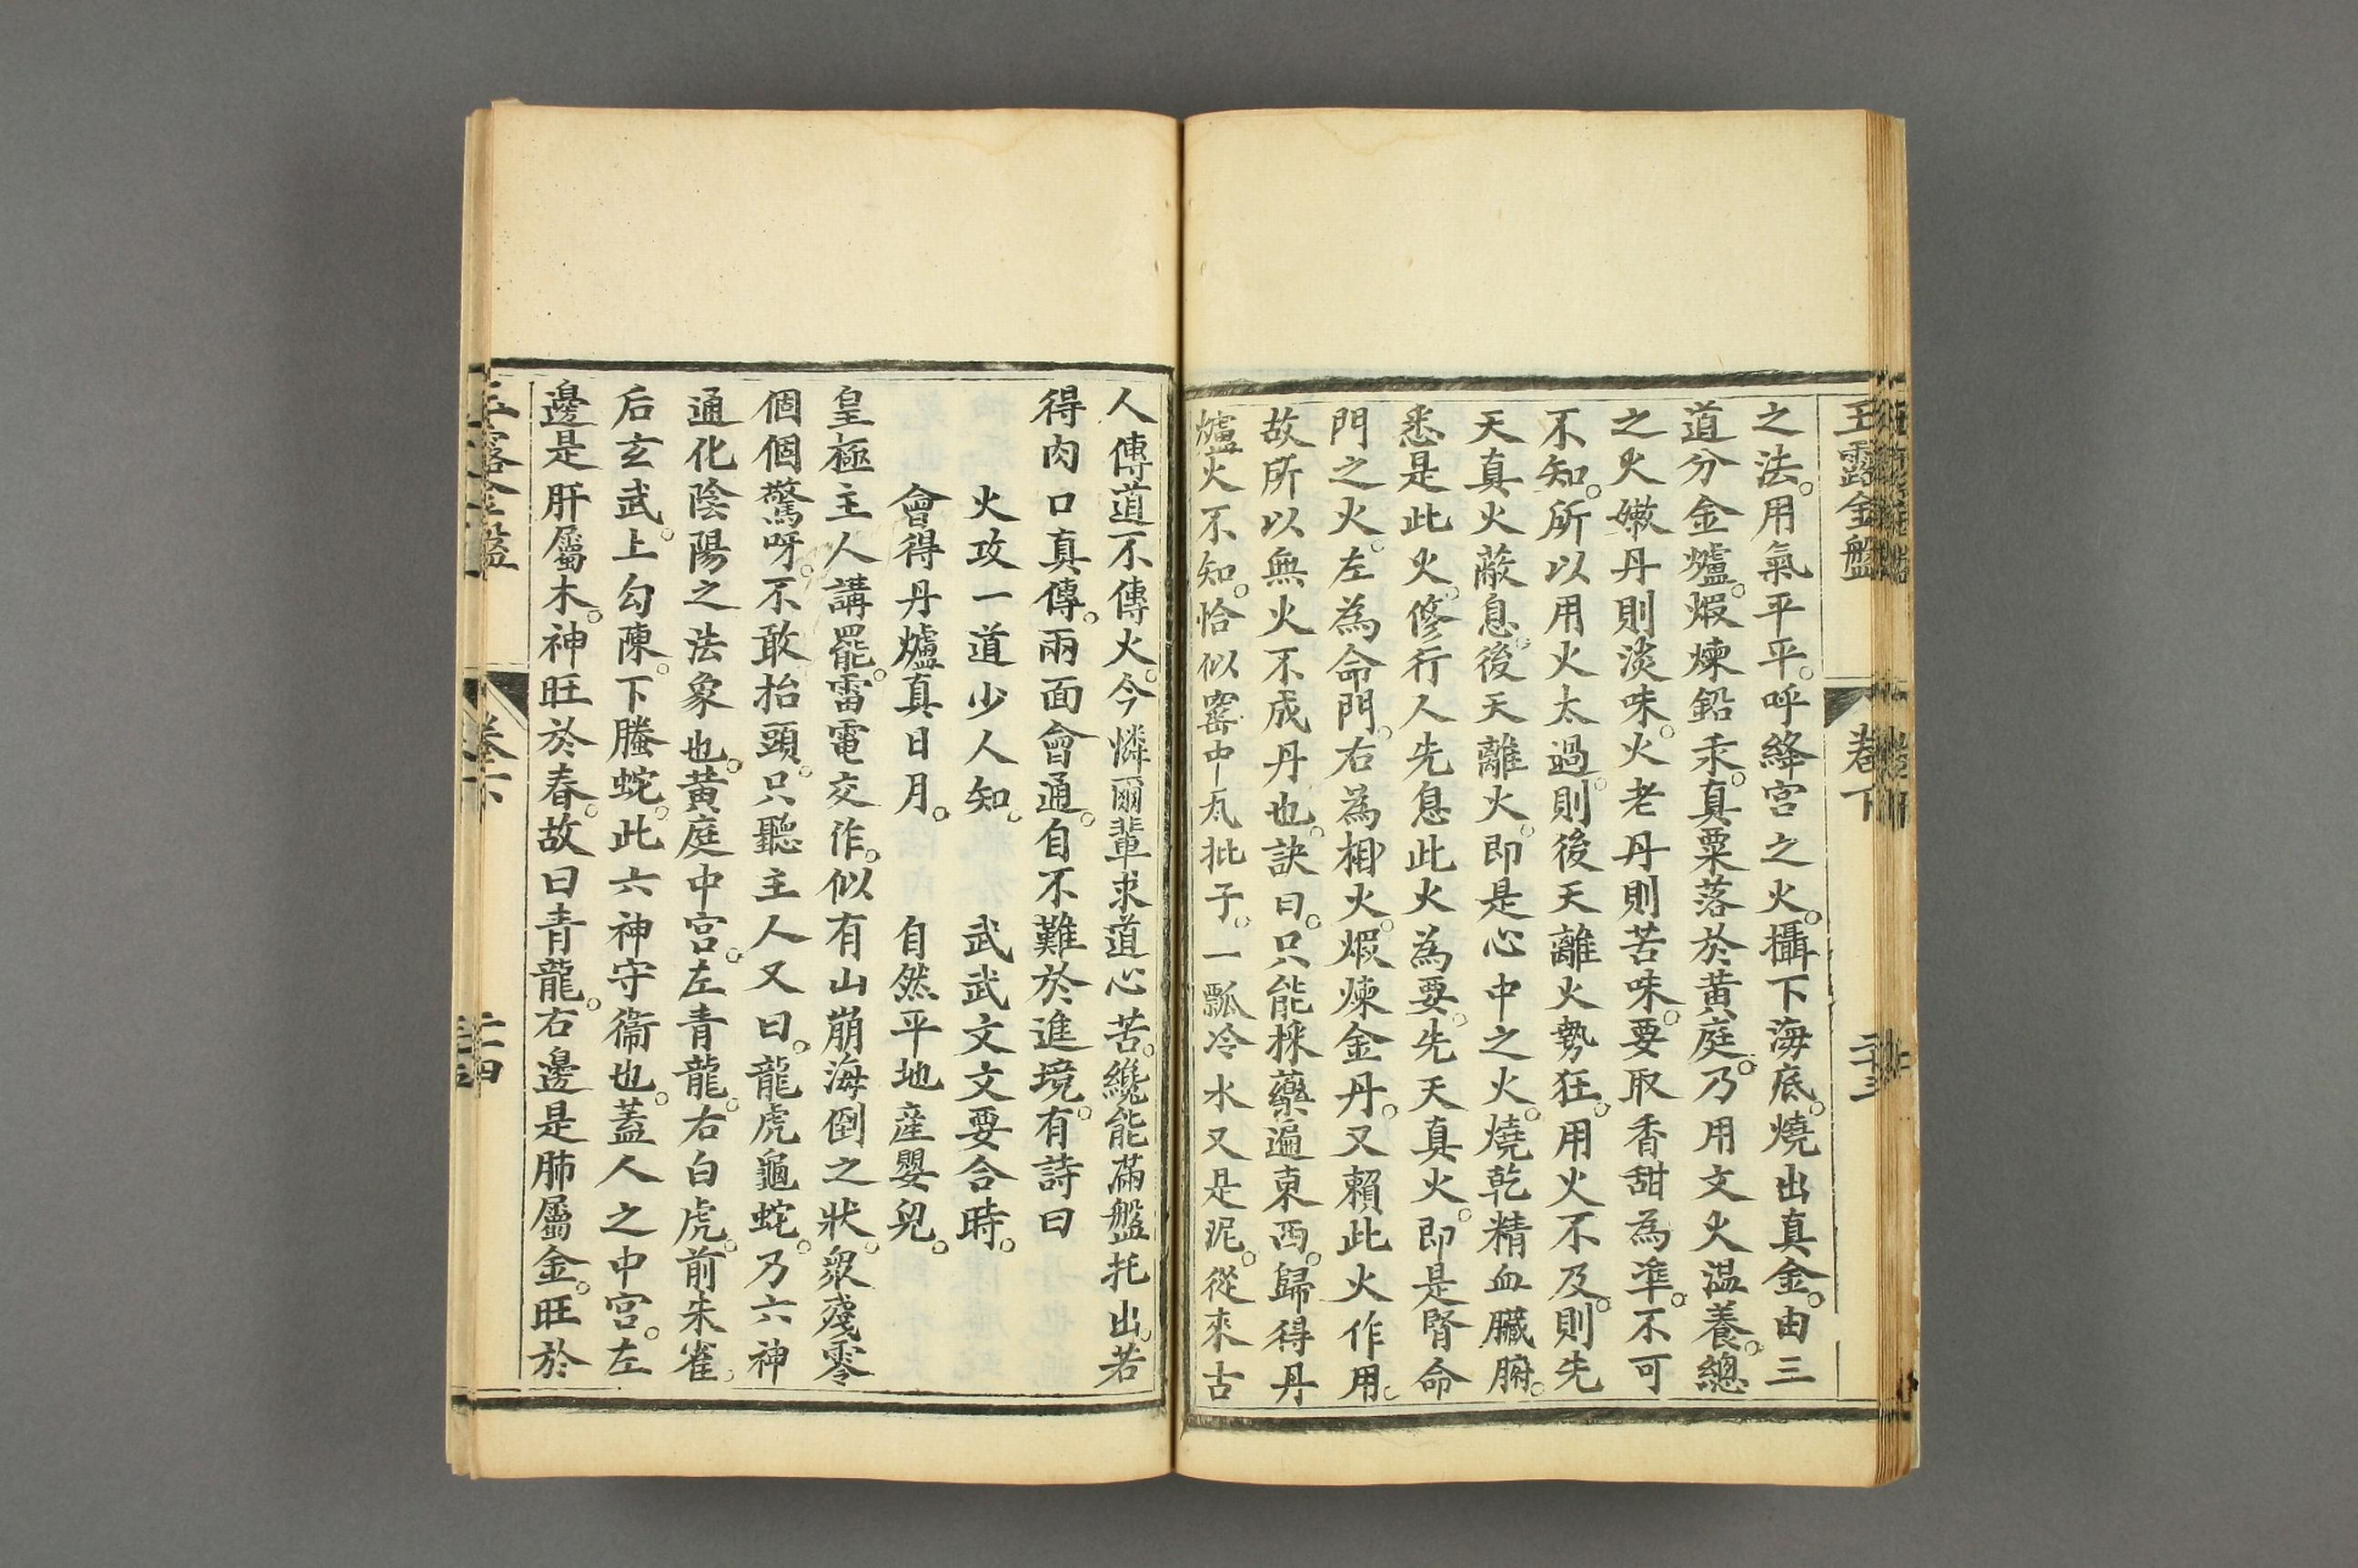 玉露金盤 卷下 二十三
之法。用氣平平。呼絳宮之火。攝下海底。燒出真金。由三
道分金爐。煆煉鉛汞。真粟落於黃庭。乃用文火溫養。總
之火嫩丹則淡味。火老丹則苦味。要取香甜為準。不可
不知。所以用火太過。則後天離火勢狂。用火不及。則先
天真火蔽息。後天離火。即是心中之火。燒乾精血臟腑。
悉是此火。修行人先息此火為要。先天真火。即是腎命
門之火。左為命門。右為相火。煆煉金丹。又賴此火作用。
故所以無火不成丹也。訣曰。只能採藥遍東西。歸得丹
爐火不知。恰似窰中瓦批子。一瓢冷水又是泥。從來古
人傳道不傳火。今憐爾輩求道心苦。纔能滿盤托出。若
得肉口真傳。兩面會通。自不難於進境。有詩曰
火攻一道少人知。 武武文文要合時。
會得丹爐真日月。 自然平地產嬰兒。
皇極主人講罷。雷電交作。似有山崩海倒之狀。眾殘零
個個驚呀。不敢抬頭。只聽主人又曰。龍虎龜蛇。乃六神
通化陰陽之法象也。黃庭中宮。左青龍。右白虎。前朱雀。
后玄武。上勾陳。下螣蛇。此六神守衞也。蓋人之中宮。左
邊是肝屬木。神旺於春。故曰青龍。右邊是肺屬金。旺於
玉露金盤 卷下 二十四